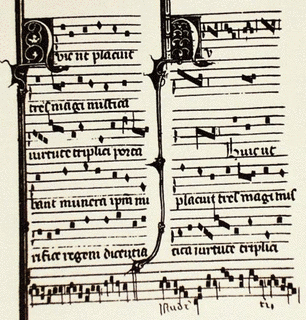 Huic ut placuit
tres magi mistica
uirtute triplici porta
bant munera ipm mi
rifice regem dicentia
H y
Huic ut
placuit tres magi mis
tica uirtute triplici